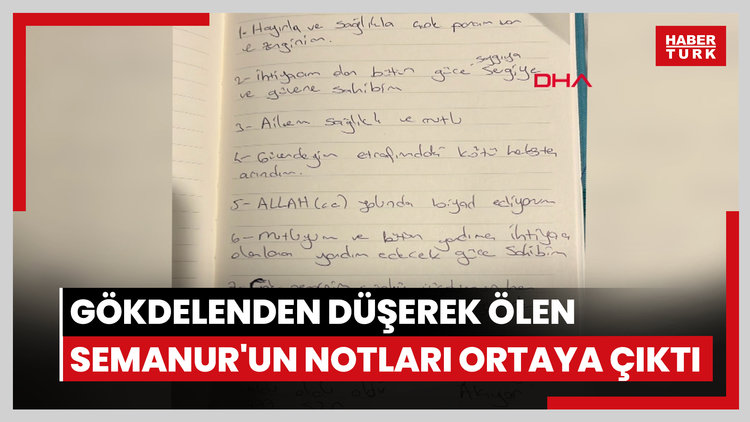 1- Hayırla ve sağlıkla çok param var
ve zenginim.
HABER
TÜRK
saygıya
2- ihtiyacım olan bütün güce sevgiye
ve güvene sahibim
DHA
3- Ailem sağlıklı ve mutlu
4- Güvendeyim etrafımdaki kötü
arındım.
5- ALLAH (cc) yolunda ediyorum
6- mutluyum ve bütün yardıma ihtiyacı
olanlara yardım edecek güce sahibim
GÖKDELENDEN DÜŞEREK ÖLEN
SEMANUR'UN NOTLARI ORTAYA ÇIKTI